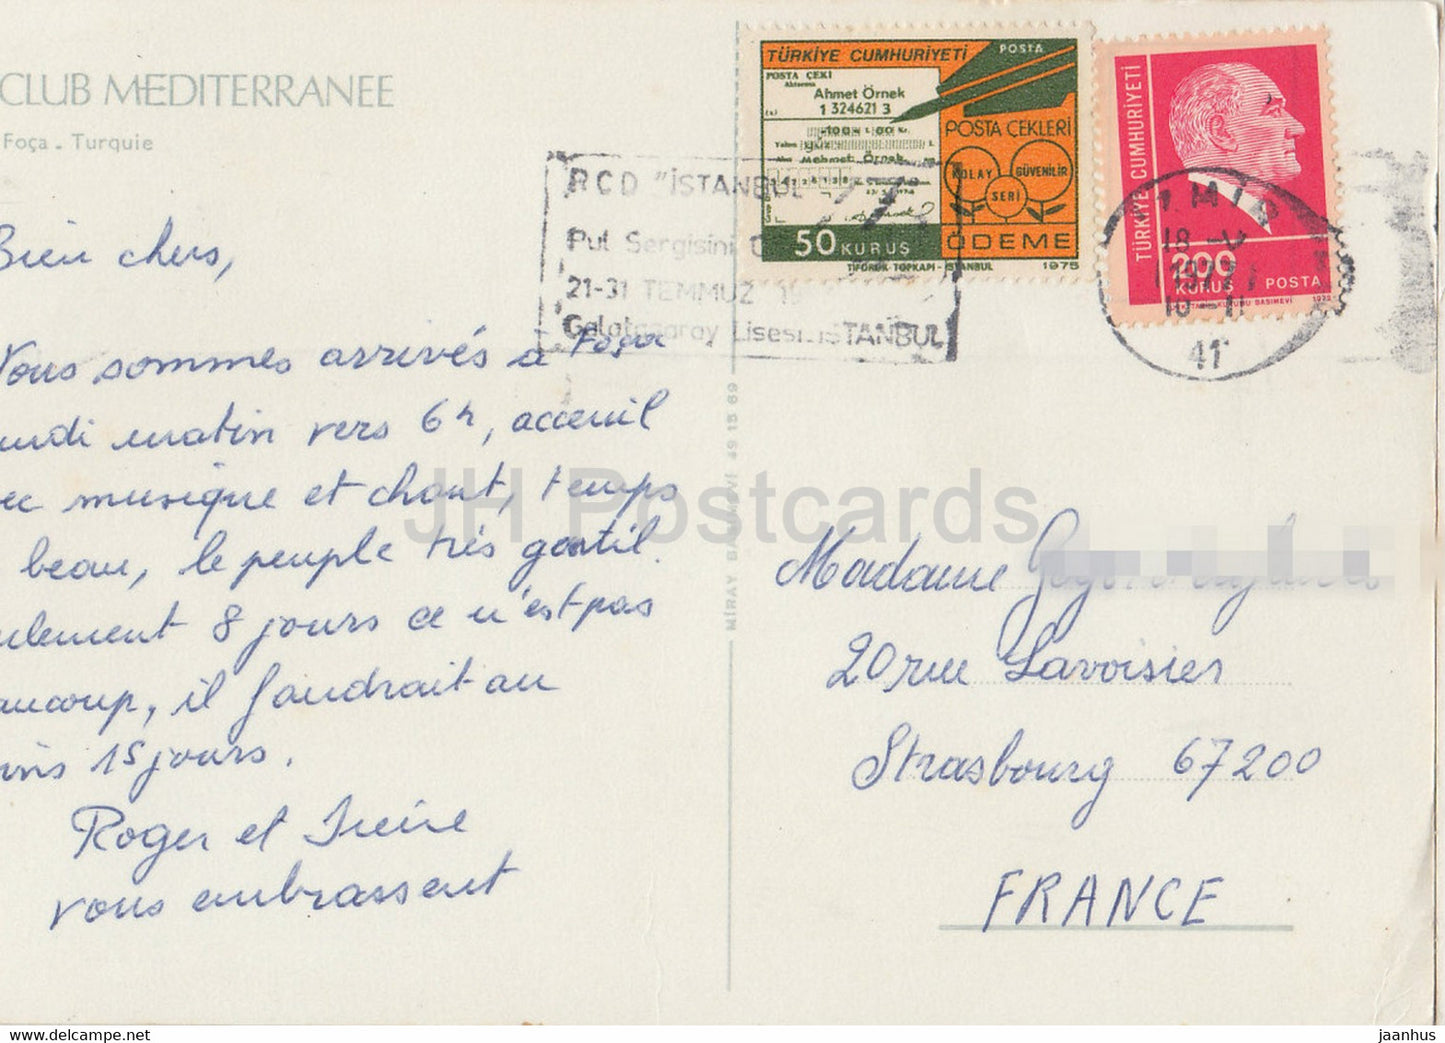 CLUB MEDITERRANEE
Foça - Turquie
Bien chers,
Nous sommes arrivés à Foça
undi matin vers 6h, acceuil
ec musique et chant, temps
beau, le peuple très gentil.
ulement 8 jours ce n'est pas
aucoup, il faudrait au
ins 15 jours.
Roger et Irène
vous embrassent
MİRAY BASIMEVİ 49 15 69
TÜRKİYE CUMHURİYETİ POSTA
POSTA ÇEKİ
Ahmet Örnek
1 324621 3
Mehmet Örnek
POSTA ÇEKLERİ
KOLAY
SERİ
GÜVENİLİR
50 KURUŞ
ÖDEME
TİFDRUK-TOPKAPI-İSTANBUL 1975
TÜRKİYE CUMHURİYETİ
200
KURUŞ POSTA
RCD "İSTANBUL 77"
Pul Sergisini
21-31 TEMMUZ 19
Galatasaray Lisesi İSTANBUL
18 -V
1977
41
Madame
20 rue Lavoisier
Strasbourg 67200
FRANCE
JH Postcards
HIP / DELCAMPE.NET
jaanhus